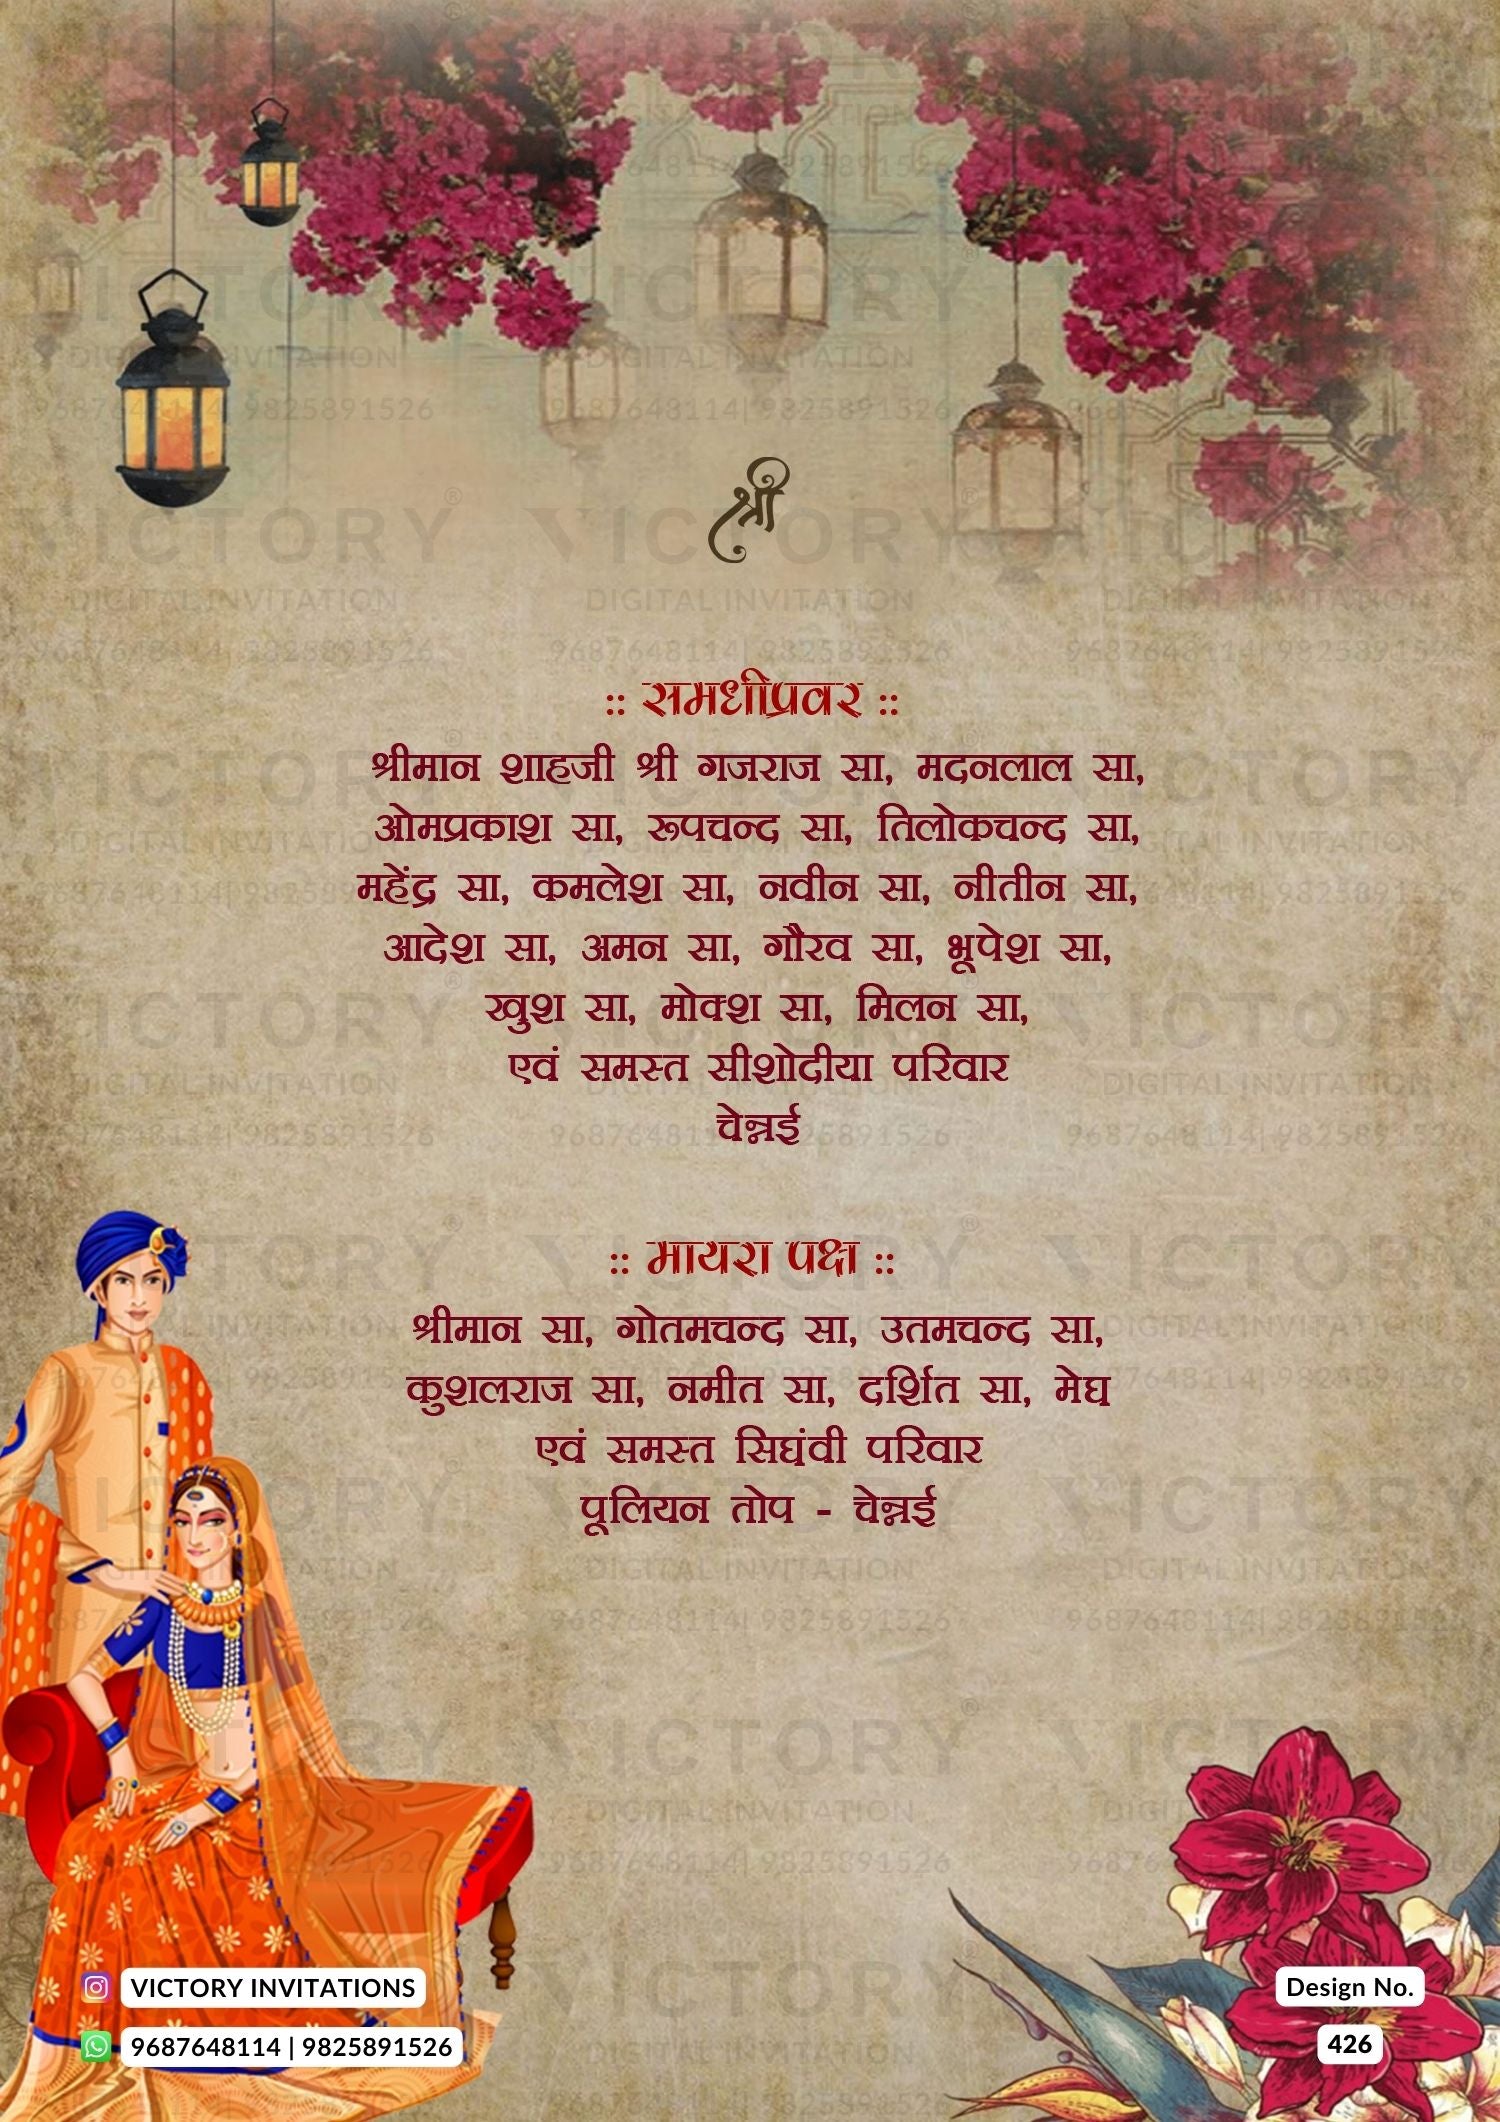 श्री
:: समधीप्रवर ::
श्रीमान शाहजी श्री गजराज सा, मदनलाल सा,
ओमप्रकाश सा, रूपचन्द सा, तिलोकचन्द सा,
महेंद्र सा, कमलेश सा, नवीन सा, नीतीन सा,
आदेश सा, अमन सा, गौरव सा, भूपेश सा,
खुश सा, मोक्श सा, मिलन सा,
एवं समस्त सीशोदीया परिवार
चेन्नई
:: मायरा पक्ष ::
श्रीमान सा, गोतमचन्द सा, उतमचन्द सा,
कुशलराज सा, नमीत सा, दर्शित सा, मेघ
एवं समस्त सिघंवी परिवार
पूलियन तोप - चेन्नई
VICTORY INVITATIONS
9687648114 | 9825891526
Design No.
426
VICTORY
DIGITAL INVITATION
9687648114| 9825891526